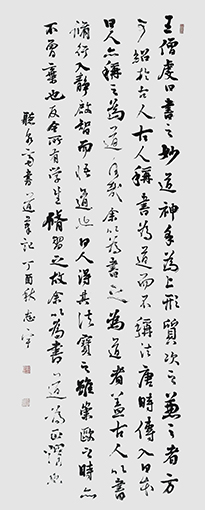 王僧虔曰書之妙道神采為上形質次之兼之者方
可紹於古人古人稱書為道而不稱法唐時傳入日本
日人亦稱之為道何哉余以為書之為道者蓋古人以書
脩行入靜啟智而悟道也日人得其法寶之雖崇歐之時亦
不曾棄也反令所有學生脩習之故余以為書道為正
聽泉齋書道筆記丁酉秋志宇